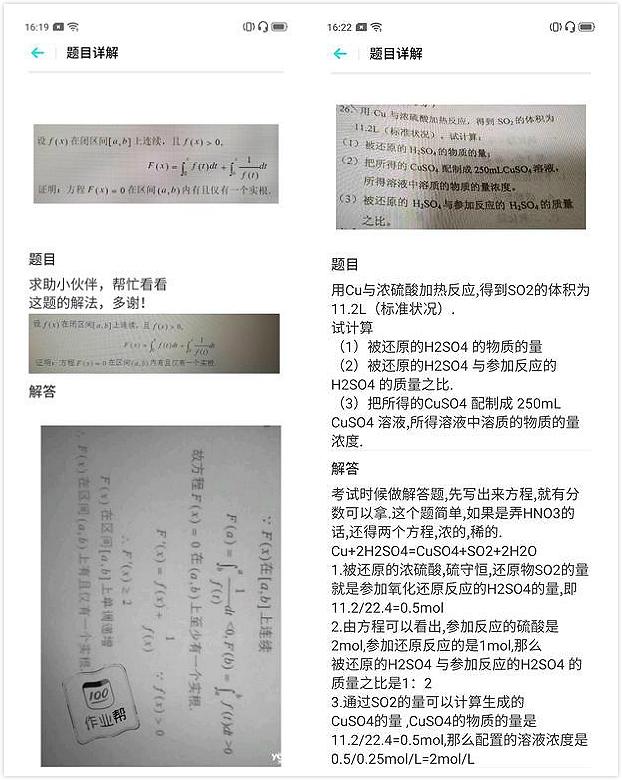 16:19
题目详解
设 f(x) 在闭区间[a,b]上连续，且 f(x)>0,
F(x)=∫ f(t)dt+∫ 1/f(t) dt
证明：方程 F(x)=0 在区间(a,b)内有且仅有一个实根.
题目
求助小伙伴，帮忙看看
这题的解法，多谢！
设 f(x) 在闭区间[a,b]上连续，且 f(x)>0,
F(x)=∫ f(t)dt+∫ 1/f(t) dt
证明：方程 F(x)=0 在区间(a,b)内有且仅有一个实根.
解答
∵ F(x)在[a,b]上连续
F(a)=∫ 1/f(t) dt<0,F(b)=∫ f(t)dt>0
故方程 F(x)=0 在(a,b)上至少有一个实根.
F'(x)=f(x)+ 1/f(x) ∵ f(x)>0
∴ F'(x)≥2
F(x)在区间[a,b]上单调递增
∴ F(x)在区间(a,b)上有且仅有一个实根
100
作业帮
16:22
题目详解
26、用 Cu 与浓硫酸加热反应，得到 SO₂ 的体积为
11.2L（标准状况）。试计算：
（1）被还原的 H₂SO₄ 的物质的量；
（2）把所得的 CuSO₄ 配制成 250mLCuSO₄ 溶液，
所得溶液中溶质的物质的量浓度。
（3）被还原的 H₂SO₄ 与参加反应的 H₂SO₄ 的质量
之比。
题目
用Cu与浓硫酸加热反应,得到SO2的体积为
11.2L（标准状况）.
试计算
（1）被还原的H2SO4 的物质的量
（2）被还原的H2SO4 与参加反应的
H2SO4 的质量之比.
（3）把所得的CuSO4 配制成 250mL
CuSO4 溶液,所得溶液中溶质的物质的量
浓度.
解答
考试时候做解答题,先写出来方程,就有分
数可以拿.这个题简单,如果是弄HNO3的
话,还得两个方程,浓的,稀的.
Cu+2H2SO4=CuSO4+SO2+2H2O
1.被还原的浓硫酸,硫守恒,还原物SO2的量
就是参加氧化还原反应的H2SO4的量,即
11.2/22.4=0.5mol
2.由方程可以看出,参加反应的硫酸是
2mol,参加还原反应的是1mol,那么
被还原的H2SO4 与参加反应的H2SO4 的
质量之比是1：2
3.通过SO2的量可以计算生成的
CuSO4的量 ,CuSO4的物质的量是
11.2/22.4=0.5mol,那么配置的溶液浓度是
0.5/0.25mol/L=2mol/L